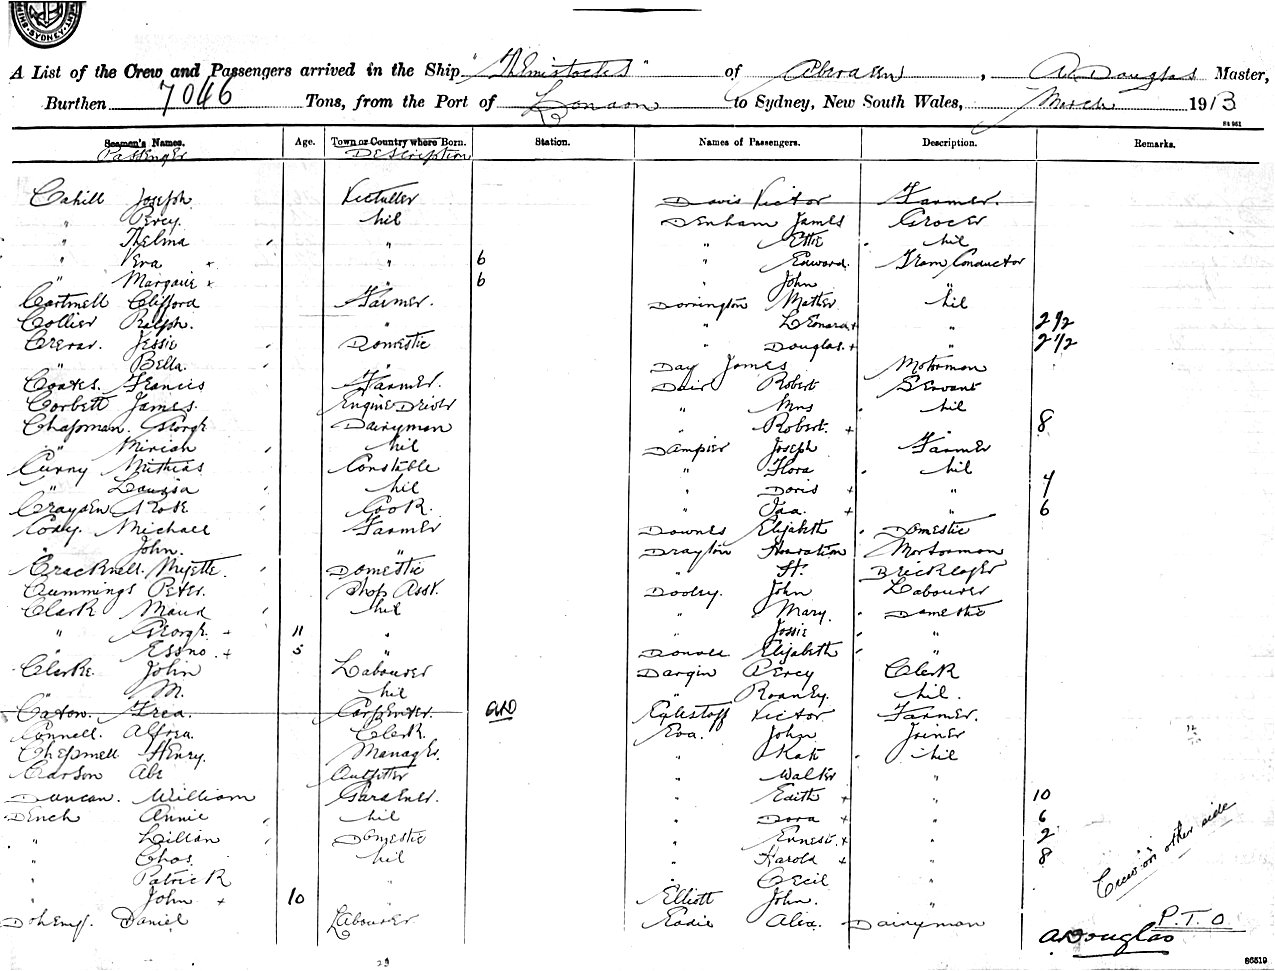 SYDNEY
A List of the Crew and Passengers arrived in the Ship "Themistocles" of Aberdeen, A. Douglas Master,
Burthen 7046 Tons, from the Port of London to Sydney, New South Wales, March 1913
84 961
Seamen's Names. Age. Town or Country where Born. Station. Names of Passengers. Description. Remarks.
Passenger Description
Cahill Joseph Davis Victor Farmer.
" Percy. Nil Denham James Grocer
" Thelma " " Ettie Nil
" Vera x " 6 " Edward. Tram Conductor
" x " 6 " John "
Cartmell Clifford Farmer. Dorrington Mather Nil
Collier Ralph. " " Leonard + " 2 1/2
Crerar. Jessie Domestic " Douglas. + " 2 1/2
" Bella. " Day James Motorman
Coates. Francis Farmer. Robert Servant
Corbett James. Engine Driver " Mrs Nil
Chapman. George Dairyman " Robert. + 8
" Miriam Nil Dampier Joseph Farmer
Mathias Constable " Flora Nil
" Louisa Nil " Doris + " 4
Crayden Rose Cook " Ida. + " 6
Cody. Michael Farmer Downes Elizabeth Domestic
" John. " Drayton Motorman
Cracknell. Domestic " H. Bricklayer
Cummings Peter. Shop Asst. Dooley. John Labourer
Clark Maud Nil " Mary. Domestic
" George + 11 " " Jossie "
" + 5 " Elizabeth "
Clarke. John Labourer Dargin Percy Clerk
" M. Nil " Nil.
Caton. Fred. Carpenter. Victor Farmer.
Connell. Alfred. Clerk Eva. John Joiner
Chepmell Henry. Manager. " Kate Nil
Carson Abe Outfitter " Walter "
Duncan. William Gardener. " Edith + " 10
Dench Annie Nil " Dora + " 6
" Lillian Domestic " Ernest. + " 2
" Chas. Nil " Harold + " 8
" Patrick " " Cecil "
" John + 10 " Elliott John. "
Daniel Labourer Eadie Dairyman
Crew on other side
P.T.O
A Douglas
29
86519